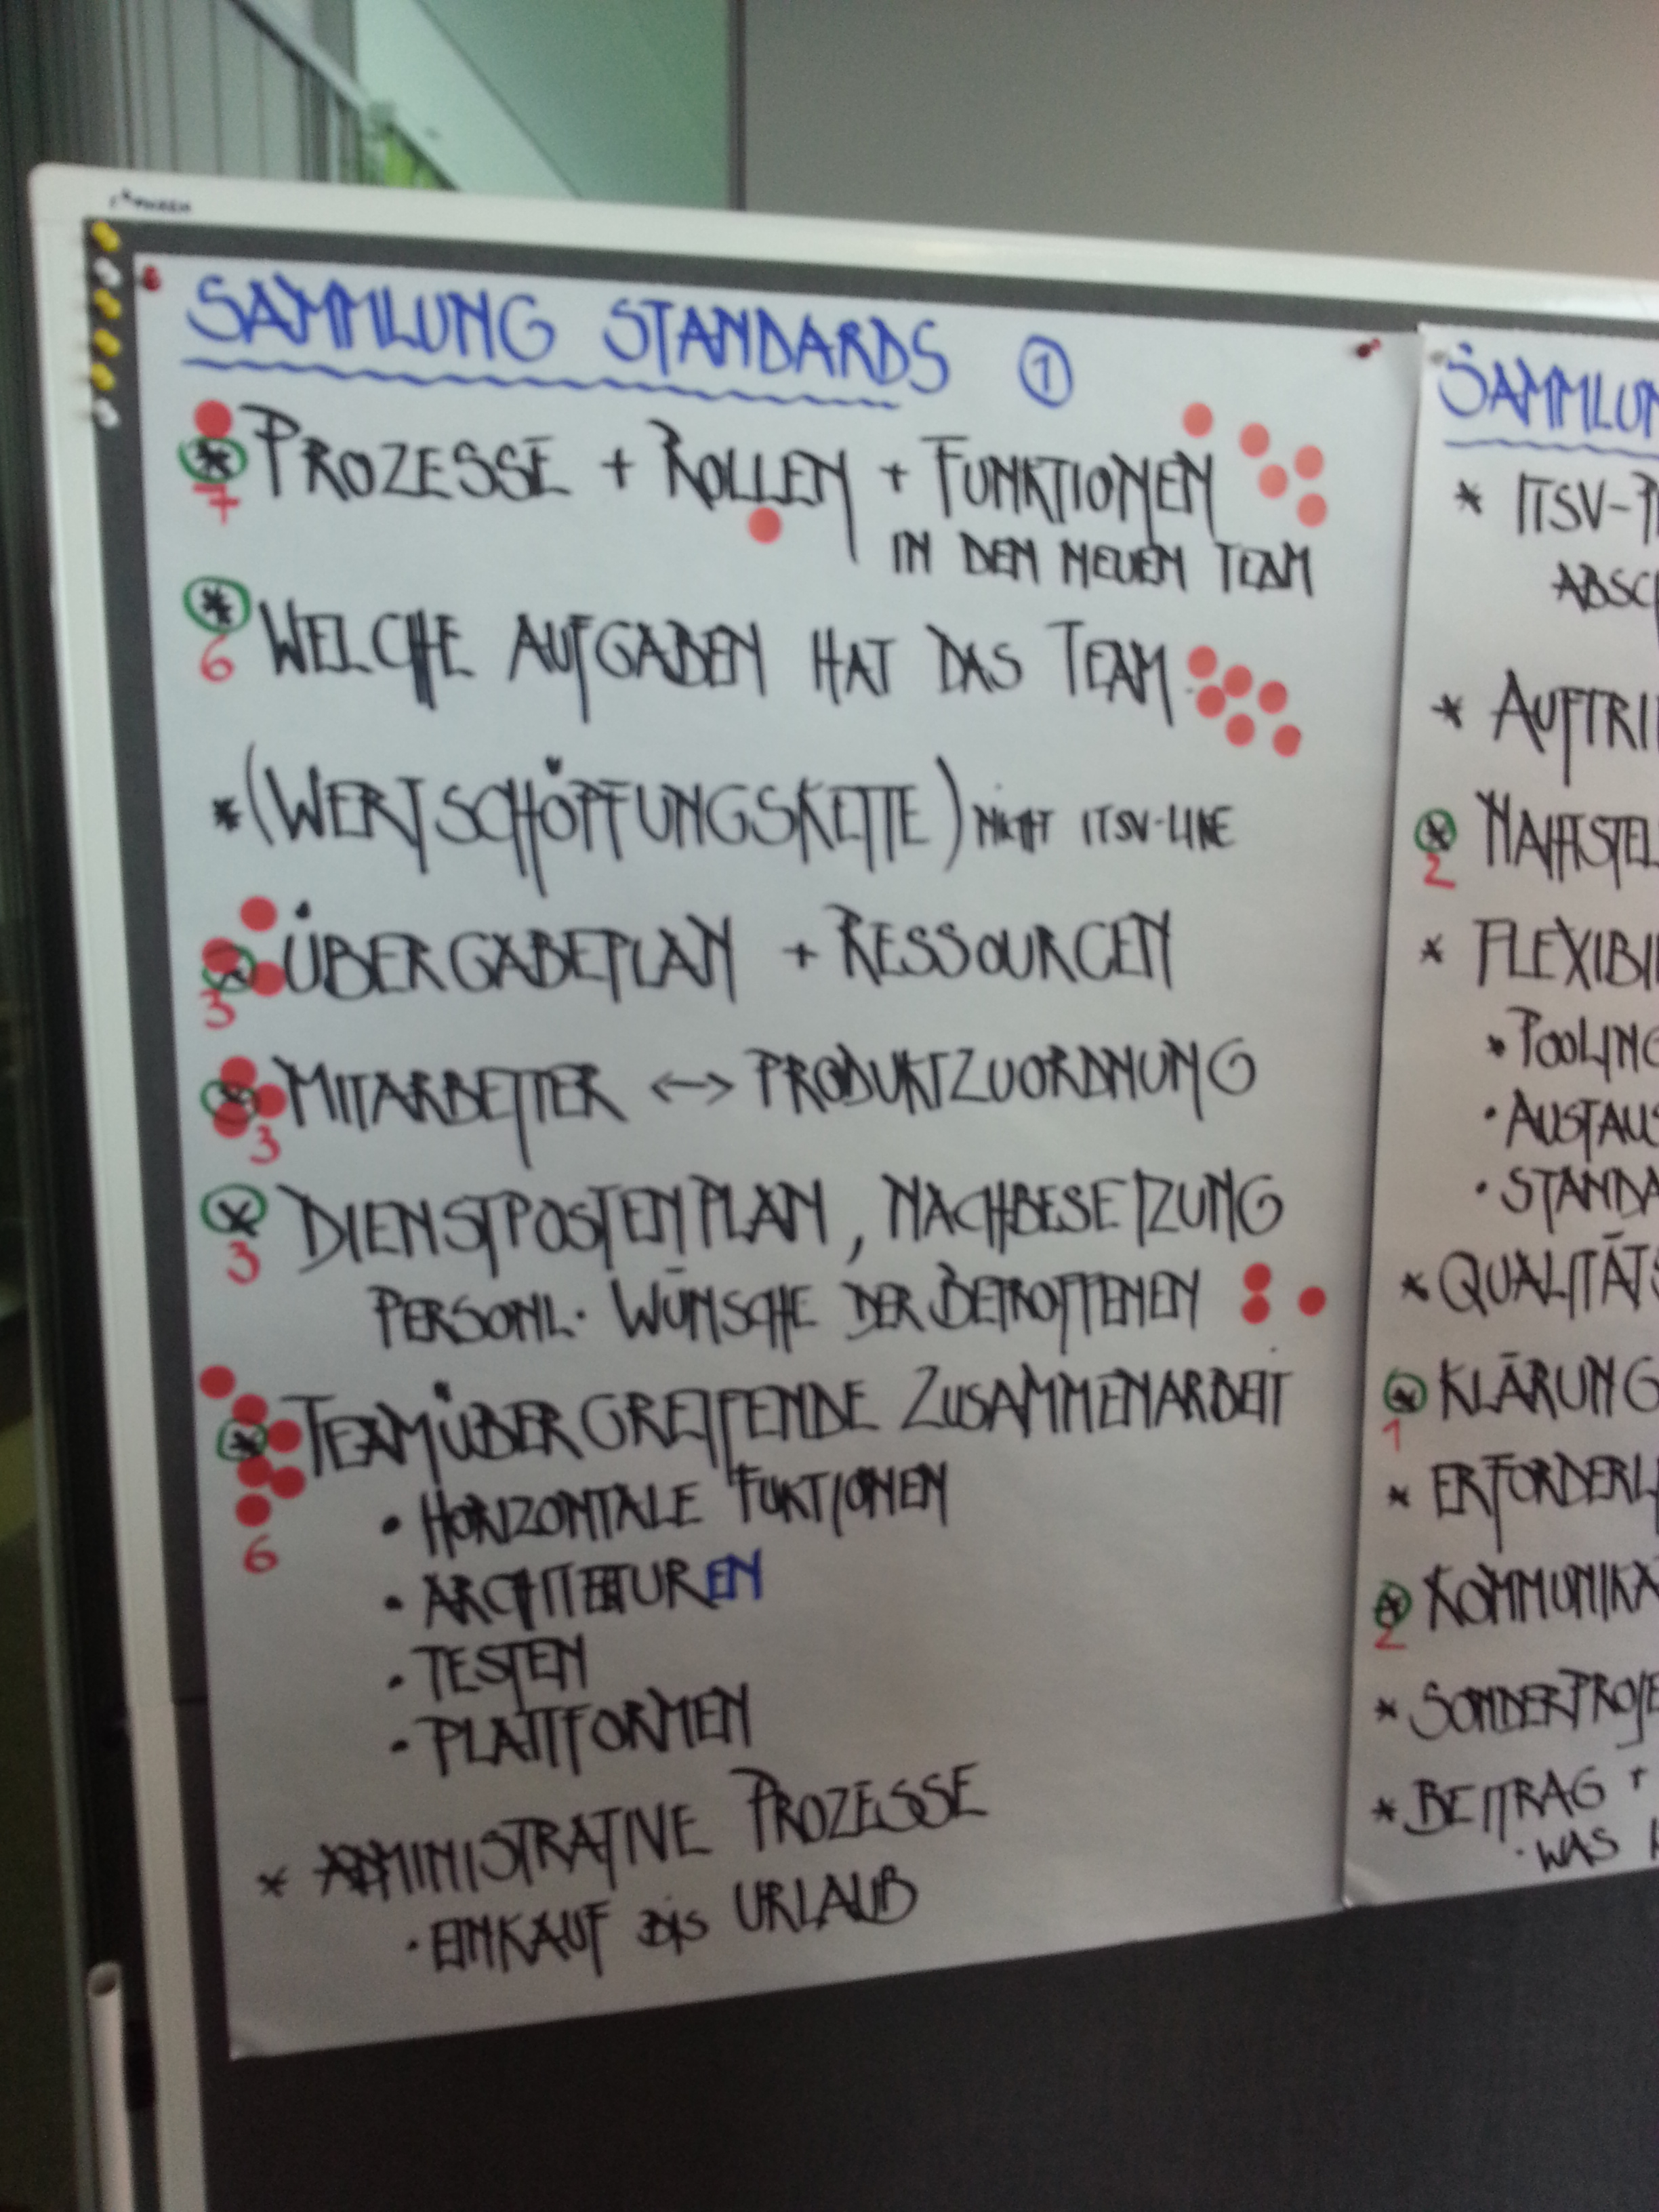 SAMMLUNG STANDARDS 1
* PROZESSE + ROLLEN + FUNKTIONEN
7
IN DEN NEUEN TEAM
* WELCHE AUFGABEN HAT DAS TEAM
6
* (WERTSCHÖPFUNGSKETTE) NICHT ITSV-LIKE
* ÜBERGABEPLAN + RESSOURCEN
3
* MITARBEITER <-> PRODUKTZUORDNUNG
3
* DIENSTPOSTENPLAN, NACHBESETZUNG
3
PERSONL. WÜNSCHE DER BETROFFENEN
* TEAMÜBERGREIFENDE ZUSAMMENARBEIT
• HORIZONTALE FUKTIONEN
6
• ARCHITEKTUREN
• TESTEN
• PLATTFORMEN
* ADMINISTRATIVE PROZESSE
• EINKAUF BIS URLAUB
SAMMLUN
* ITSV-P
ABSC
* AUFTRI
* NAHTSTEL
2
* FLEXIBI
• POOLING
• AUSTAUS
• STANDA
* QUALITÄTS
* KLÄRUNG
1
* ERFORDERL
* KOMMUNIKA
2
* SONDERPROJE
* BEITRAG +
• WAS